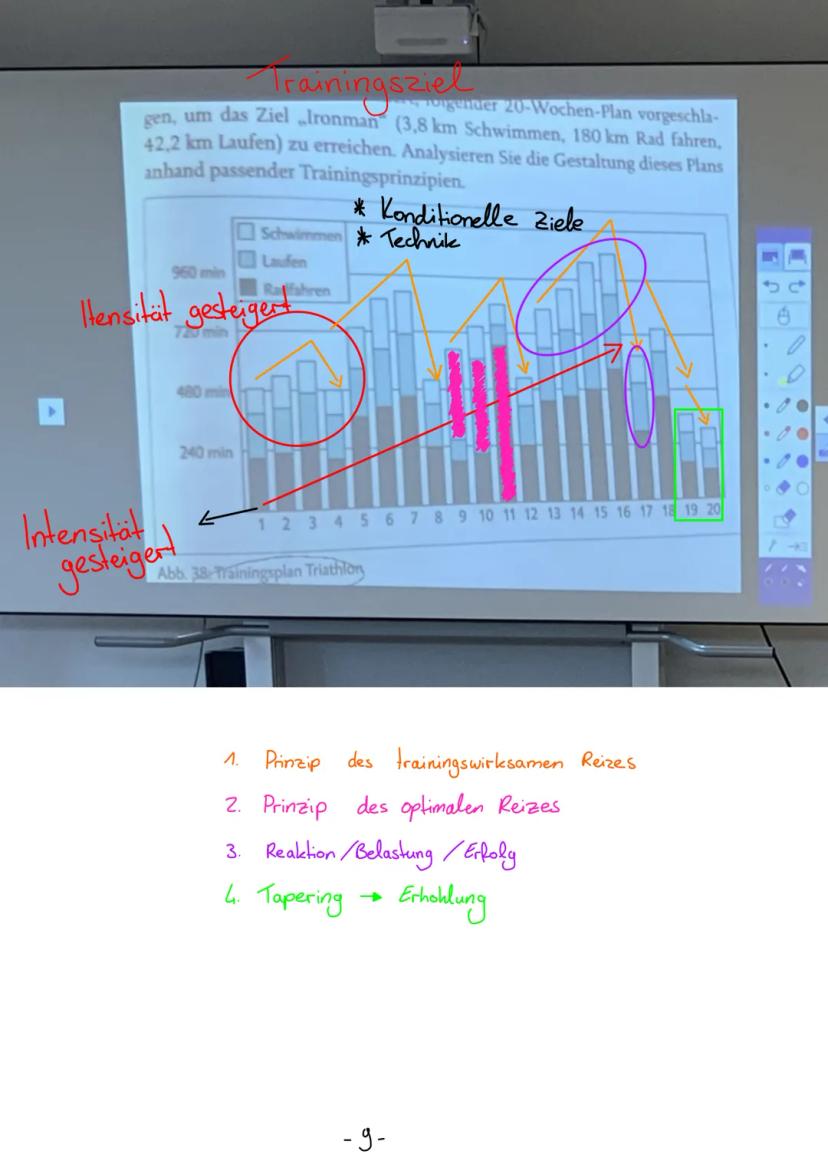 Trainingsziel
folgender 20-Wochen-Plan vorgeschla-
gen, um das Ziel „Ironman" (3,8 km Schwimmen, 180 km Rad fahren,
42,2 km Laufen) zu erreichen. Analysieren Sie die Gestaltung dieses Plans
anhand passender Trainingsprinzipien.
* Konditionelle Ziele
* Technik
Schwimmen
Laufen
Radfahren
960 min
Itensität gesteigert
720 min
480 min
240 min
1 2 3 4 5 6 7 8 9 10 11 12 13 14 15 16 17 18 19 20
Intensität
gesteigert
Abb. 38: Trainingsplan Triathlon
1. Prinzip des trainingswirksamen Reizes
2. Prinzip des optimalen Reizes
3. Reaktion/Belastung/Erfolg
4. Tapering → Erhohlung
- 9 -